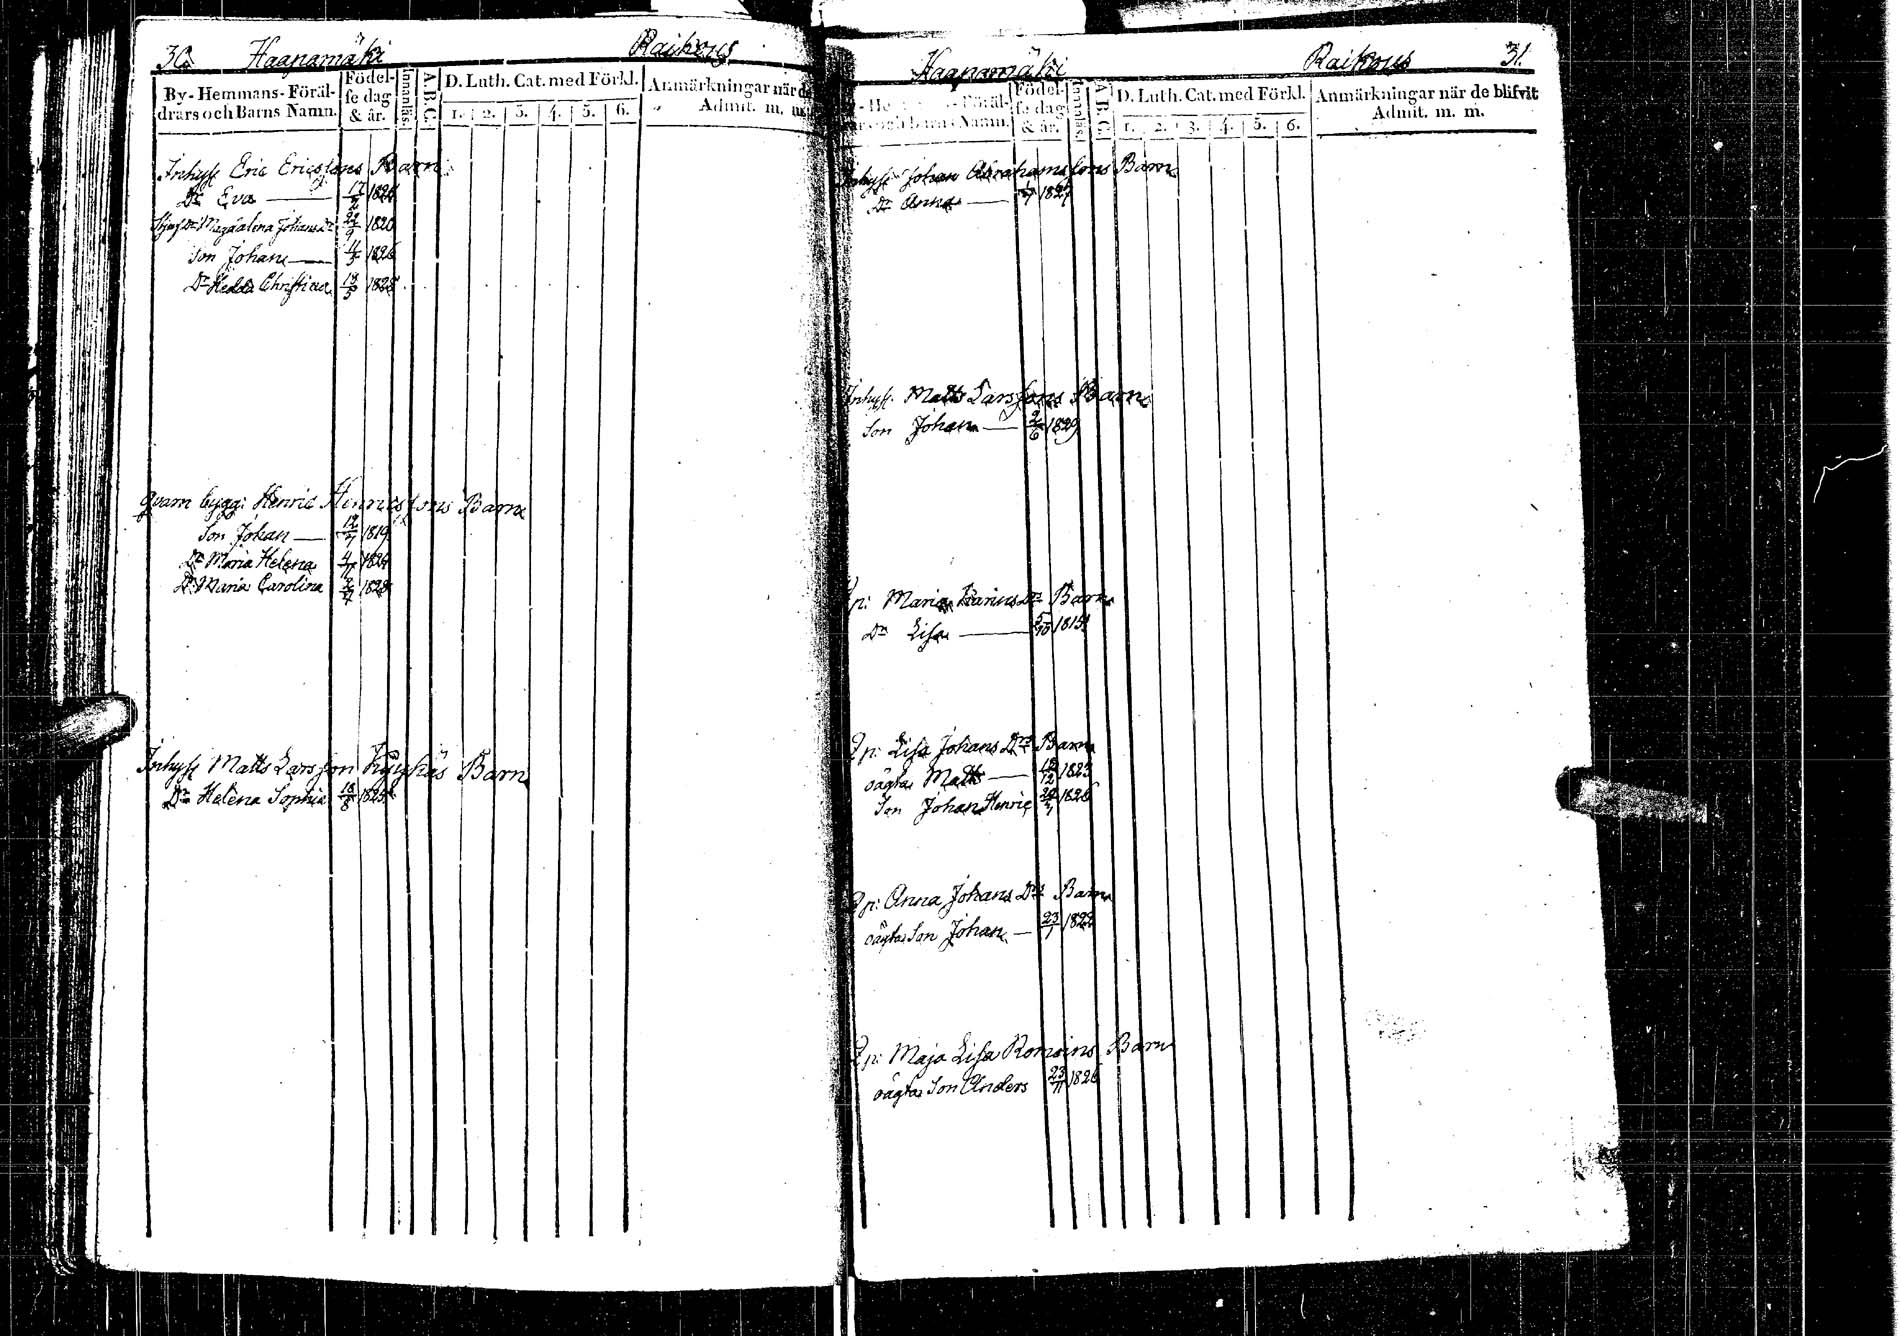 30. Haapamäki Raikous
By- Hemmans- Föräl-
drars och Barns Namn.
Födel-
se dag
& år.
Innanläs.
A.B.C.
D. Luth. Cat. med Förkl.
1. 2. 3. 4. 5. 6.
Anmärkningar när de
Admit. m. m.
Inhyss Eric Ericssons Barn
Dr Eva 17/2 1826
Magdalena Johansdr 22/9 1820
Son Johan 1826
Dr Hedda Christina 18/5 1828
Qvarn bygg: Henric Henricssons Barn
Son Johan 12/7 1819
Dr Maria Helena 1824
Dr Maria Carolina 1828
Inhyss Matts Larsson Barn
Dr Helena Sophia 18/8 1825
Haapamäki Raikous 31.
Föräl-
och Barns Namn.
Födel-
se dag
& år.
Innanläs.
A.B.C.
D. Luth. Cat. med Förkl.
1. 2. 3. 4. 5. 6.
Anmärkningar när de blifvit
Admit. m. m.
Inhyss Johan Abrahamssons Barn
Dr Anna 1827
Inhyss Matts Larssons Barn
Son Johan 2/6 1829
Qp: Maria Barn
Dr Lisa 5/10 1815
Qp: Lisa Johans Drs Barn
oägta Matts 1823
Son Johan Henric 1826
Qp: Anna Johans Drs Barn
oägta Son Johan 23/1 1822
Qp: Maja Lisa Romoins Barn
oägta Son Anders 23/11 1826